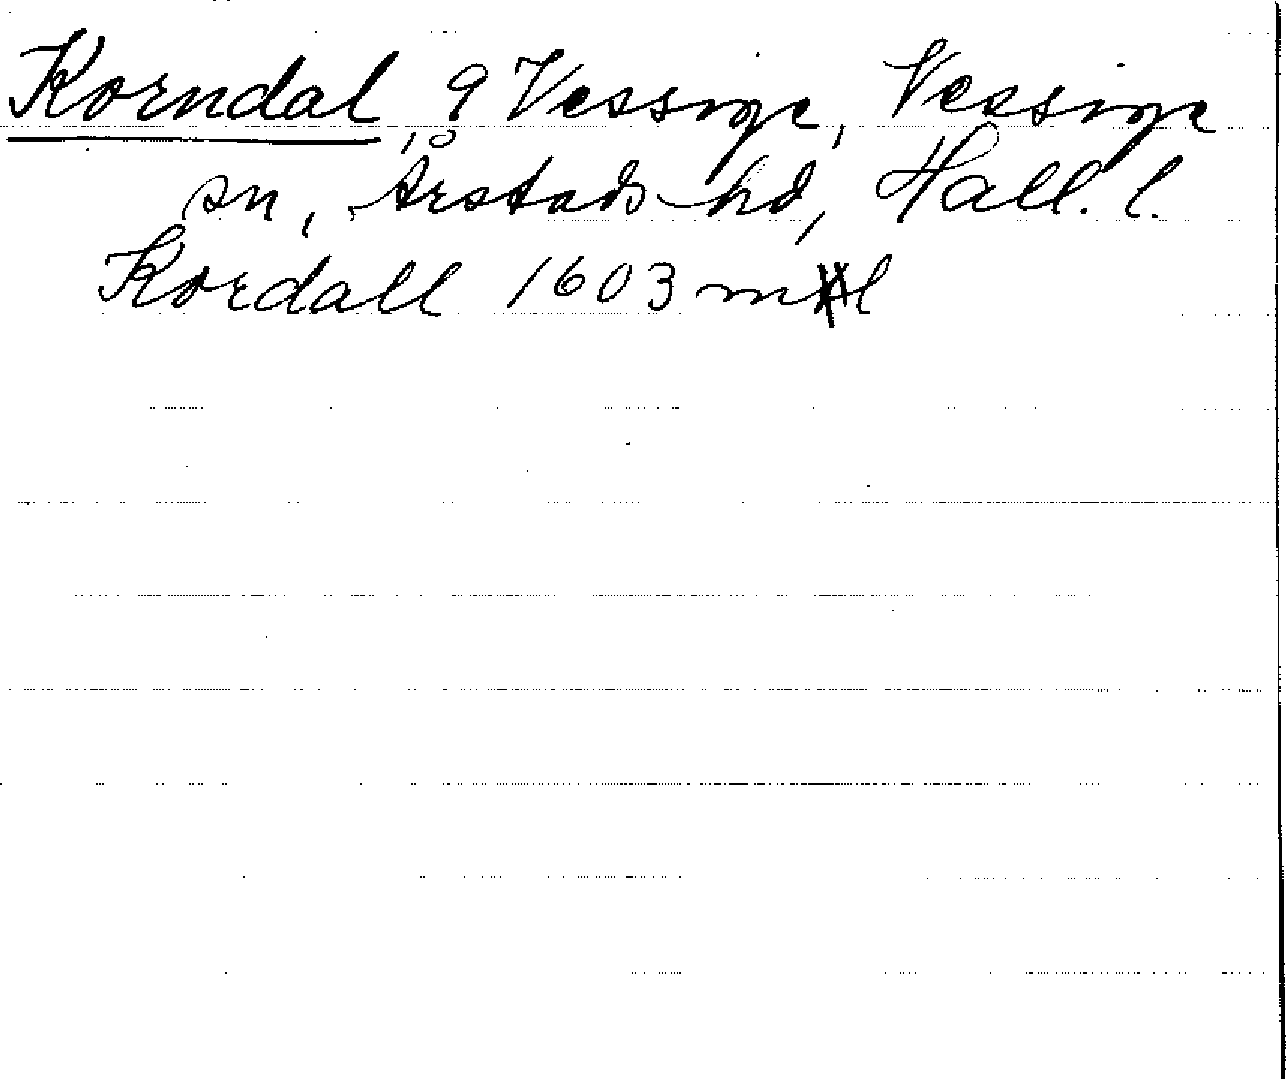 Korndal, 9 Vessige, Vessige
sn, Årstads hd, Hall. l.
Kordall 1603 ml